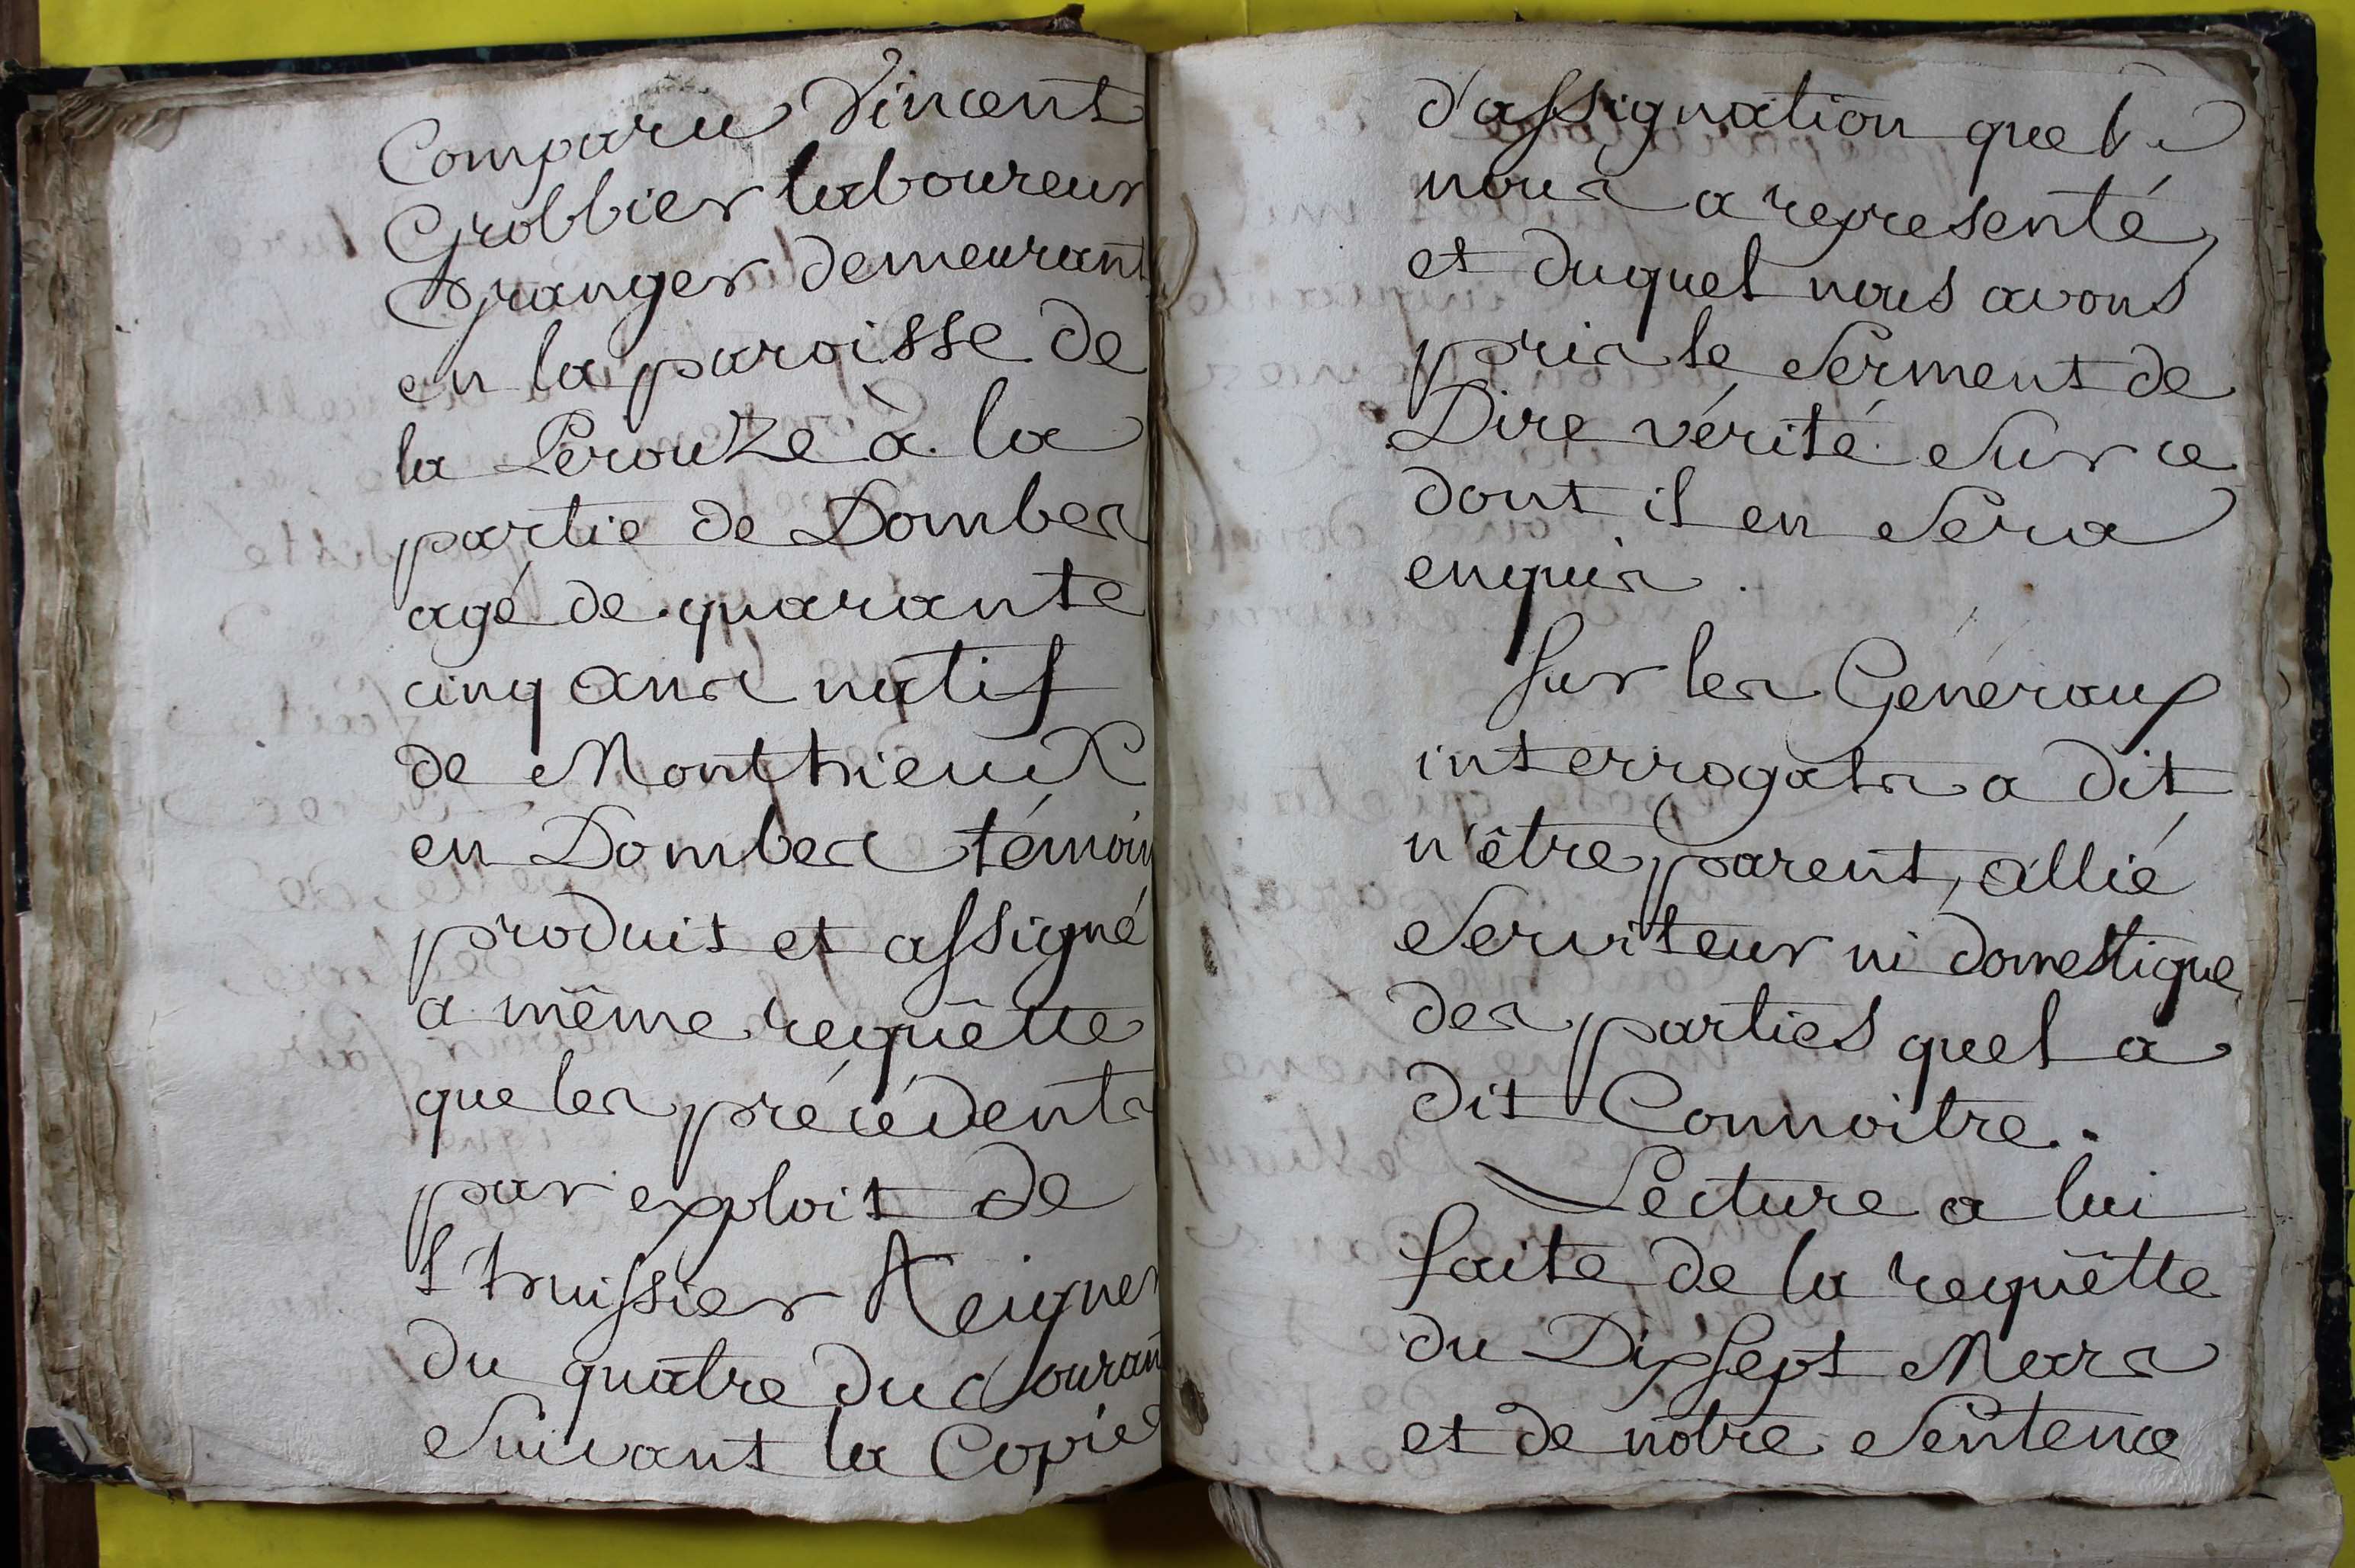 Comparu Vincent
Grobbier laboureur
Granger demeurant
en la paroisse de
la Pérouze à la
partie de Dombes
agé de quarante
cinq ans natif
de Monthieux
en Dombes témoin
produit et assigné
a même requêtte
que les précédents
par exploit de
l'huissier Reignier
du quatre du Courant
Suivant la Copie
d'assignation quel
nous a representé,
et duquel nous avons
pris le Serment de
Dire vérité Sur ce
dont il en Sera
enquis.
Sur les Généraux
interrogats a dit
n'être parent, allié
Serviteur ni domestique
des parties quel a
dit Connoitre.
Lecture a lui
faite de la requêtte
du Dix Sept Mars
et de nôtre Sentence